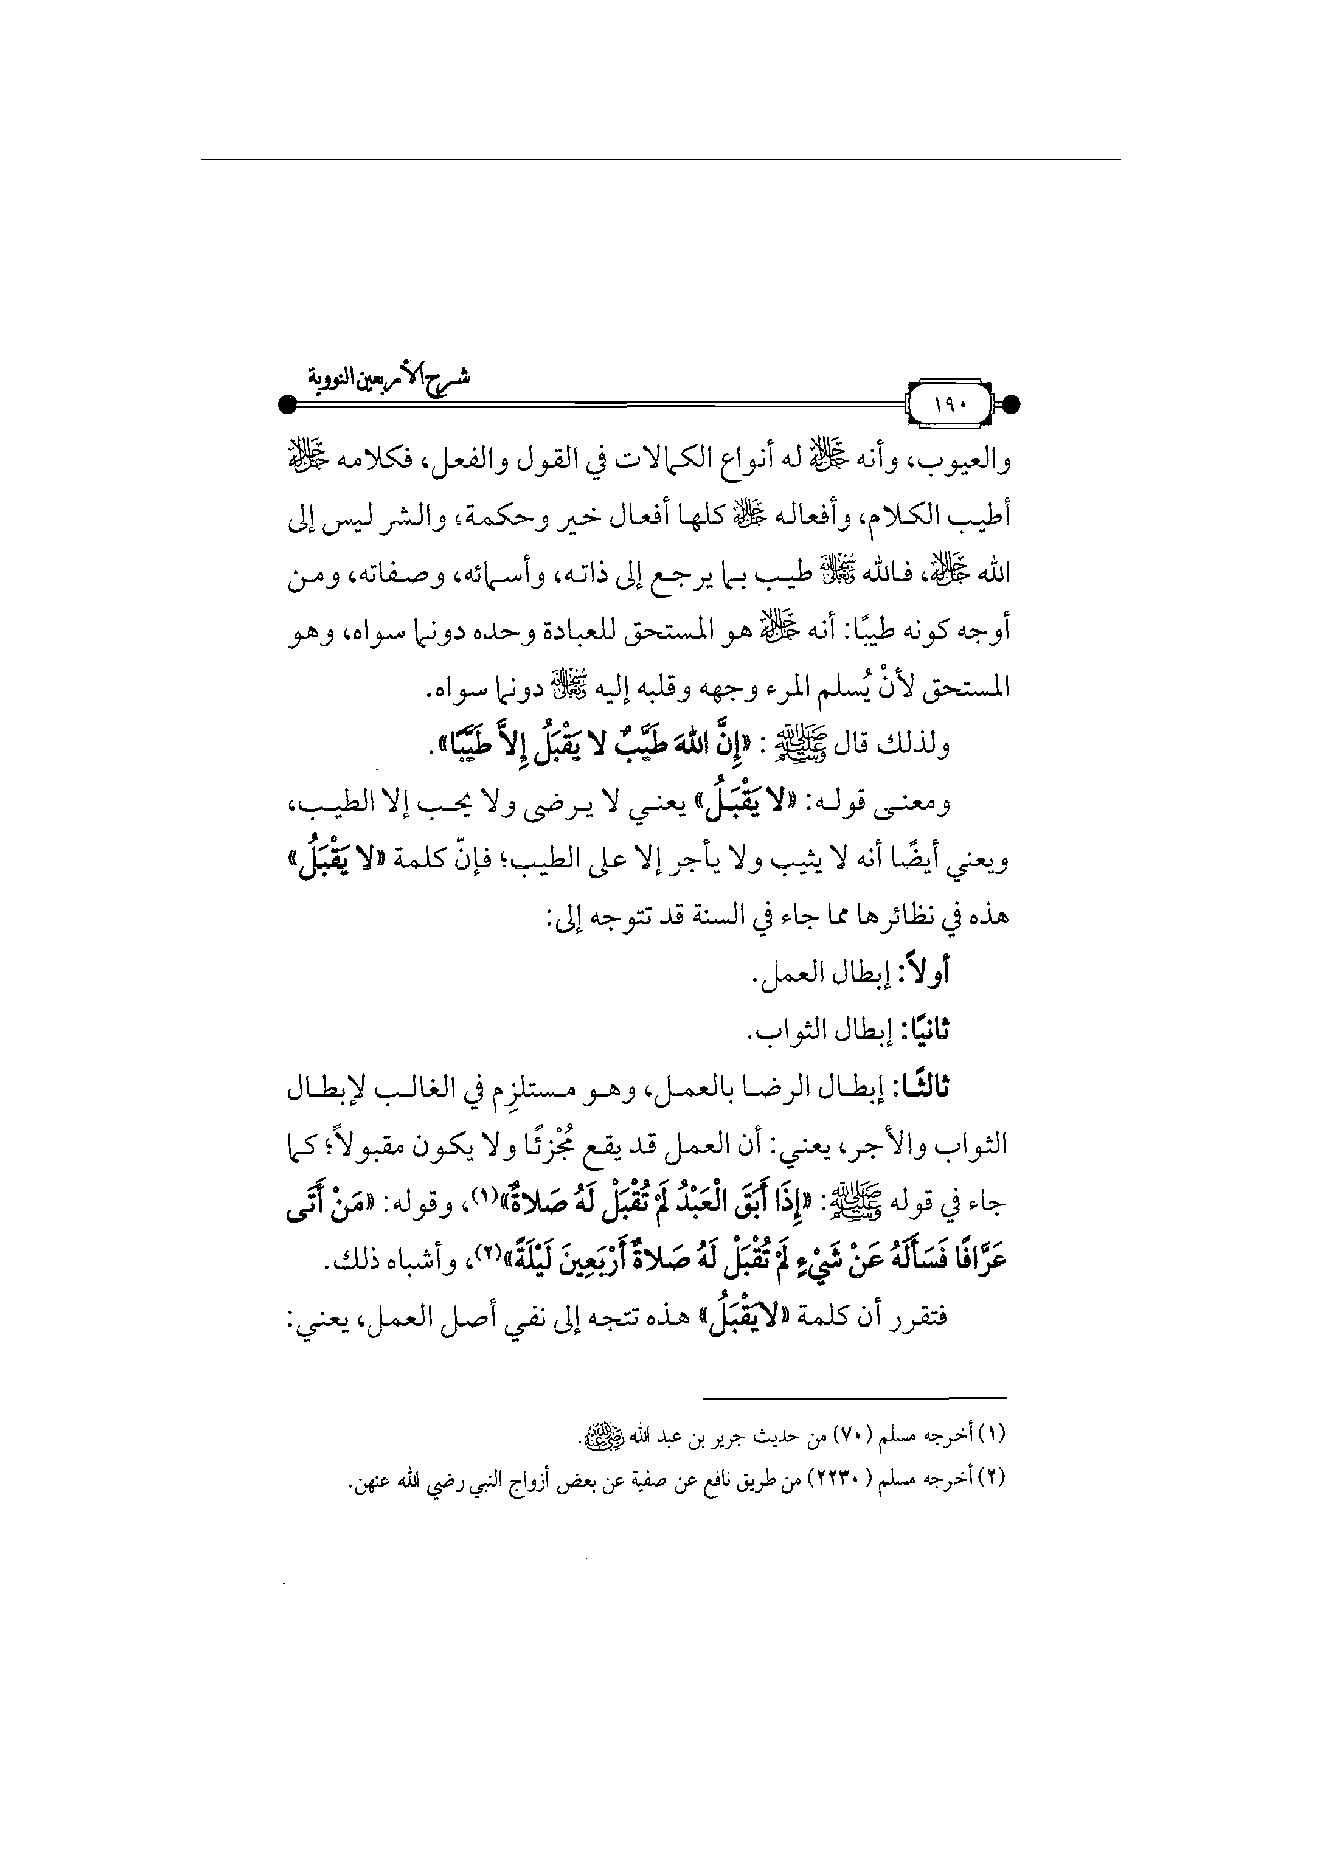 شرح الأربعين النووية
١٩٠
والعيوب، وأنه ﷻ له أنواع الكمالات في القول والفعل، فكلامه ﷻ
أطيب الكلام، وأفعاله ﷻ كلها أفعال خير وحكمة، والشر ليس إلى
الله ﷻ، فالله طيب بما يرجع إلى ذاته، وأسمائه، وصفاته، ومن
أوجه كونه طيبًا: أنه ﷻ هو المستحق للعبادة وحده دونما سواه، وهو
المستحق لأنْ يُسلم المرء وجهه وقلبه إليه دونما سواه.
ولذلك قال ﷺ : «إِنَّ اللهَ طَيَّبٌ لا يَقْبَلُ إِلاَّ طَيَّبًا».
ومعنى قوله: «لا يَقْبَلُ» يعني لا يرضى ولا يحب إلا الطيب،
ويعني أيضًا أنه لا يثيب ولا يأجر إلا على الطيب؛ فإنّ كلمة «لا يَقْبَلُ»
هذه في نظائرها مما جاء في السنة قد تتوجه إلى:
أولاً: إبطال العمل.
ثانيًا: إبطال الثواب.
ثالثًا: إبطال الرضا بالعمل، وهو مستلزِم في الغالب لإبطال
الثواب والأجر، يعني: أن العمل قد يقع مُجْزئًا ولا يكون مقبولاً؛ كما
جاء في قوله ﷺ: «إِذَا أَبَقَ الْعَبْدُ لَمْ تُقْبَلْ لَهُ صَلاةٌ»(١)، وقوله: «مَنْ أَتَى
عَرَّافًا فَسَأَلَهُ عَنْ شَيْءٍ لَمْ تُقْبَلْ لَهُ صَلاةٌ أَرْبَعِينَ لَيْلَةً»(٢)، وأشباه ذلك.
فتقرر أن كلمة «لايَقْبَلُ» هذه تتجه إلى نفي أصل العمل، يعني:
(١) أخرجه مسلم (٧٠) من حديث جرير بن عبد الله رضي الله عنه.
(٢) أخرجه مسلم ( ٢٢٣٠) من طريق نافع عن صفية عن بعض أزواج النبي رضي الله عنهن.